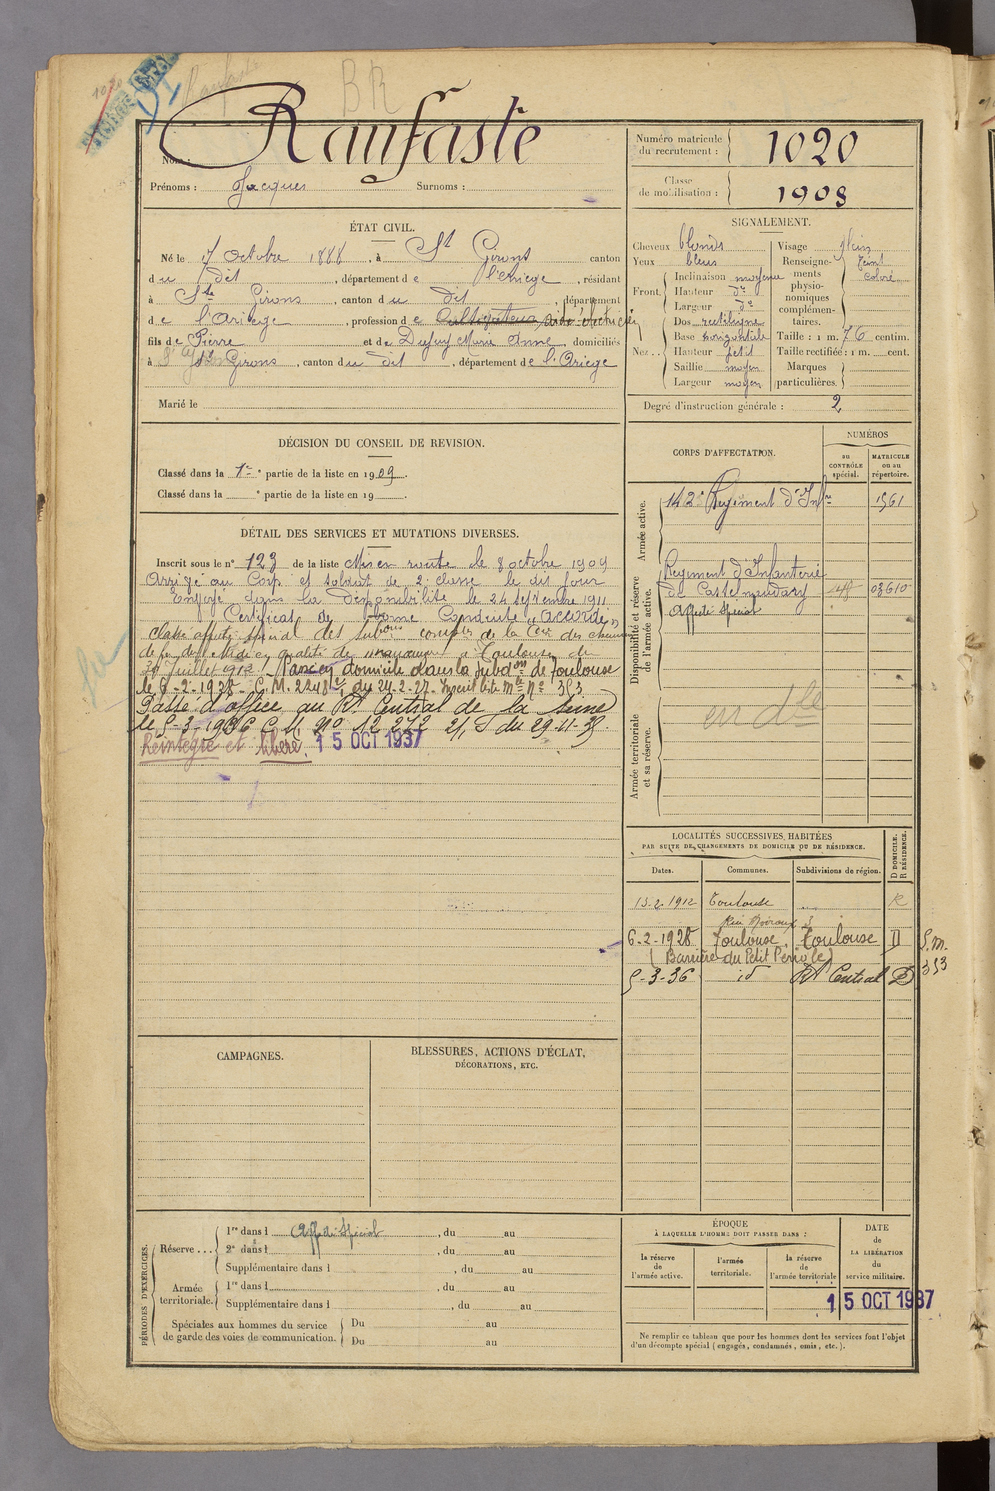 BR
Ranfaste
Nom :
Prénoms : Jacques Surnoms :
Numéro matricule du recrutement : 1020
Classe de mobilisation : 1908
ÉTAT CIVIL.
Né le 7 octobre 1888, à St Girons canton
du dit, département de l'Ariège, résidant
à St Girons, canton du dit, département
de l'Ariège, profession de Cultivateur
fils de Pierre et de Marie Anne domiciliés
à St Girons, canton du dit, département de l'Ariège
Marié le
SIGNALEMENT.
Cheveux blonds
Yeux bleus
Front. Inclinaison moyenne
Hauteur do
Largeur do
Nez Dos rectiligne
Base horizontale
Hauteur petit
Saillie moyen
Largeur moyen
Visage plein
Renseignements physionomiques complémentaires. Teint coloré
Taille : 1 m. 76 centim.
Taille rectifiée : 1 m. cent.
Marques particulières.
Degré d'instruction générale : 2
DÉCISION DU CONSEIL DE REVISION.
Classé dans la 1re partie de la liste en 1909.
Classé dans la e partie de la liste en 19 .
DÉTAIL DES SERVICES ET MUTATIONS DIVERSES.
Inscrit sous le n° 123 de la liste Mis en route le 8 octobre 1909
Arrivé au Corps et soldat de 2e classe le dit jour
Envoyé dans la disponibilité le 24 septembre 1911
Certificat de Bonne Conduite "Accordé"
Classé affecté spécial des subons de la Cie des chemins
de fer du Midi en qualité de à Toulouse du
30 juillet 1912 Passé domicile dans la Subdon de Toulouse
le 6-2-1928
Passé d'office au Rt Central de la Seine
le 5-3-1936 C M no 12 272 du 29-11-35
Réintégré et libéré. 15 OCT 1937
CORPS D'AFFECTATION.
NUMÉROS
au CONTRÔLE spécial.
MATRICULE ou au répertoire.
Armée active.
142e Régiment d'Infie 1561
Disponibilité et réserve de l'armée active.
Régiment d'Infanterie
de Castelnaudary 03610
Affecté Spécial
Armée territoriale et sa réserve.
en dle
LOCALITÉS SUCCESSIVES HABITÉES
PAR SUITE DE CHANGEMENTS DE DOMICILE OU DE RÉSIDENCE.
Dates. Communes. Subdivisions de région. D DOMICILE. R RÉSIDENCE.
15-2-1912 Toulouse R
6-2-1928 Toulouse. Toulouse D
(Barrière du Petit Périole)
5-3-36 id Rt Central D
353
CAMPAGNES.
BLESSURES, ACTIONS D'ÉCLAT,
DÉCORATIONS, ETC.
PÉRIODES D'EXERCICES.
Réserve ... 1re dans l Affecté Spécial, du au
2e dans l , du au
Supplémentaire dans l , du au
Armée territoriale. 1re dans l , du au
Supplémentaire dans l , du au
Spéciales aux hommes du service de garde des voies de communication. Du au
Du au
ÉPOQUE
À LAQUELLE L'HOMME DOIT PASSER DANS :
la réserve de l'armée active.
l'armée territoriale.
la réserve de l'armée territoriale
DATE de LA LIBÉRATION du service militaire.
15 OCT 1937
Ne remplir ce tableau que pour les hommes dont les services font l'objet
d'un décompte spécial (engagés, condamnés, omis, etc.).